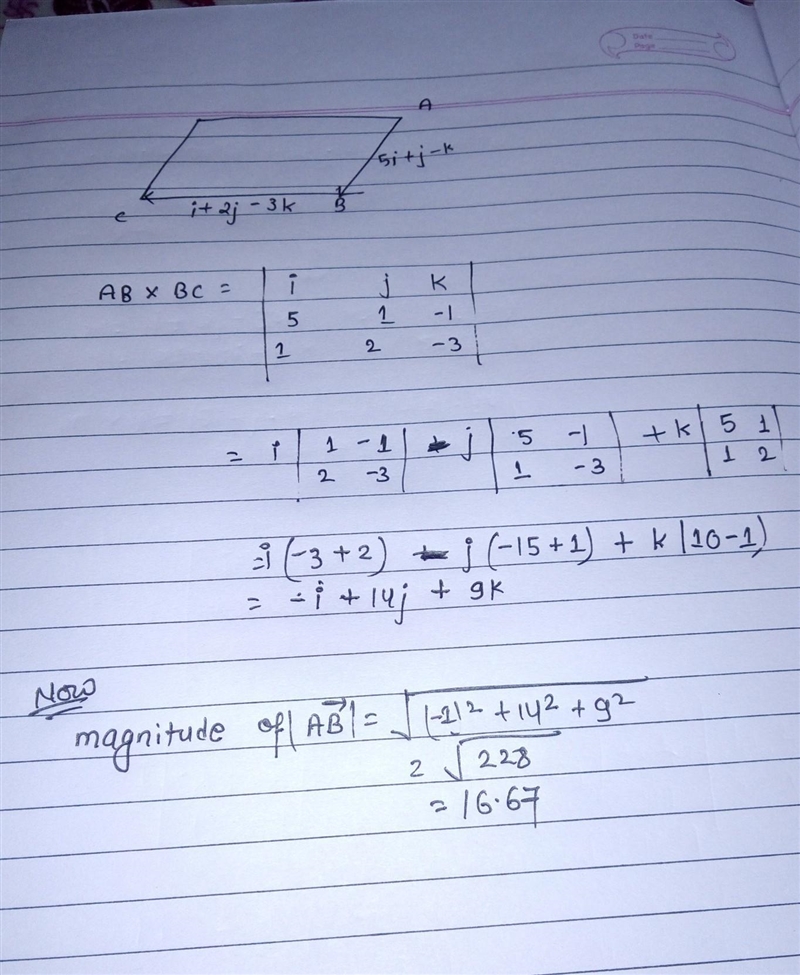 Date
Page
A
5i+j-k
C i+2j-3k B
AB x BC = | i j k |
| 5 1 -1 |
| 1 2 -3 |
= i | 1 -1 | - j | 5 -1 | + k | 5 1 |
| 2 -3 | | 1 -3 | | 1 2 |
= i (-3+2) - j (-15+1) + k |10-1)
= -i + 14j + 9k
Now
magnitude of |AB| = √(-1)² + 14² + 9²
2 √228
= 16.67